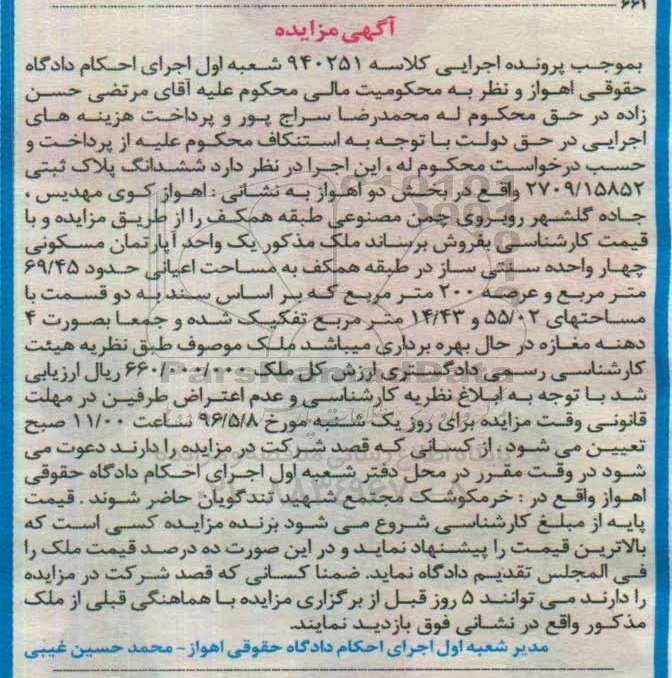 ۶۶۱
آگهی مزایده
بموجب پرونده اجرایی کلاسه ۹۴۰۲۵۱ شعبه اول اجرای احکام دادگاه
حقوقی اهواز و نظر به محکومیت مالی محکوم علیه آقای مرتضی حسن
زاده در حق محکوم له محمدرضا سراج پور و پرداخت هزینه های
اجرایی در حق دولت با توجه به استنکاف محکوم علیه از پرداخت و
حسب درخواست محکوم له ، این اجرا در نظر دارد ششدانگ پلاک ثبتی
۲۷۰۹/۱۵۸۵۲ واقع در بخش دو اهواز به نشانی : اهواز کوی مهدیس ،
جاده گلشهر روبروی چمن مصنوعی طبقه همکف را از طریق مزایده و با
قیمت کارشناسی بفروش برساند ملک مذکور یک واحد آپارتمان مسکونی
چهار واحده سنتی ساز در طبقه همکف به مساحت اعیانی حدود ۶۹/۴۵
متر مربع و عرصه ۲۰۰ متر مربع که بر اساس سند به دو قسمت با
مساحتهای ۵۵/۰۲ و ۱۴/۴۳ متر مربع تفکیک شده و جمعا بصورت ۴
دهنه مغازه در حال بهره برداری میباشد ملک موصوف طبق نظریه هیئت
کارشناسی رسمی دادگستری ارزش کل ملک ۶۶۰/۰۰۰/۰۰۰ ریال ارزیابی
شد با توجه به ابلاغ نظریه کارشناسی و عدم اعتراض طرفین در مهلت
قانونی وقت مزایده برای روز یک شنبه مورخ ۹۶/۵/۸ ساعت ۱۱/۰۰ صبح
تعیین می شود. از کسانی که قصد شرکت در مزایده را دارند دعوت می
شود در وقت مقرر در محل دفتر شعبه اول اجرای احکام دادگاه حقوقی
اهواز واقع در : خرمکوشک مجتمع شهید تندگویان حاضر شوند . قیمت
پایه از مبلغ کارشناسی شروع می شود برنده مزایده کسی است که
بالاترین قیمت را پیشنهاد نماید و در این صورت ده درصد قیمت ملک را
فی المجلس تقدیم دادگاه نماید. ضمنا کسانی که قصد شرکت در مزایده
را دارند می توانند ۵ روز قبل از برگزاری مزایده با هماهنگی قبلی از ملک
مذکور واقع در نشانی فوق بازدید نمایند.
مدیر شعبه اول اجرای احکام دادگاه حقوقی اهواز - محمد حسین غیبی